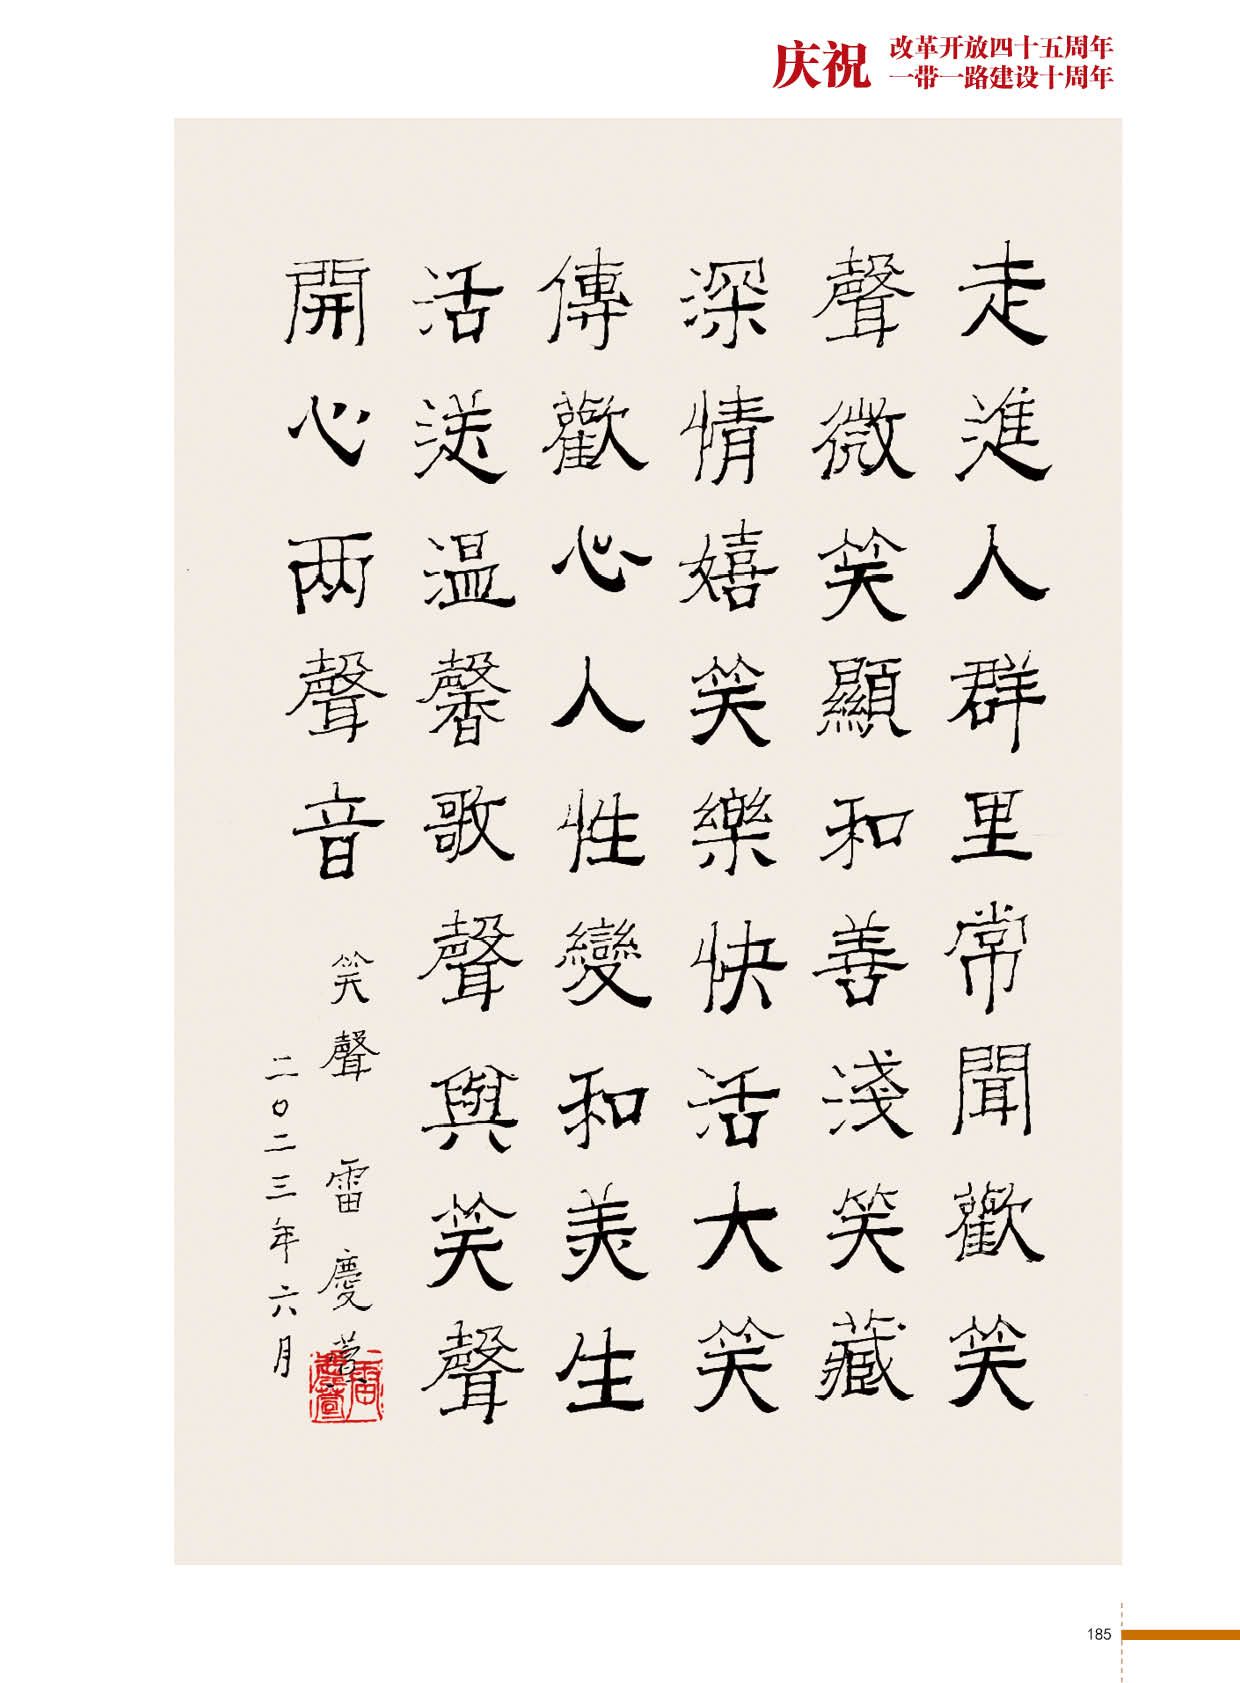 庆祝
改革开放四十五周年
一带一路建设十周年
走進人群里常聞歡笑
聲微笑顯和善淺笑藏
深情嬉笑樂快活大笑
傳歡心人性變和美生
活送温馨歌聲與笑聲
開心两聲音
笑聲 雷慶
二〇二三年六月
185